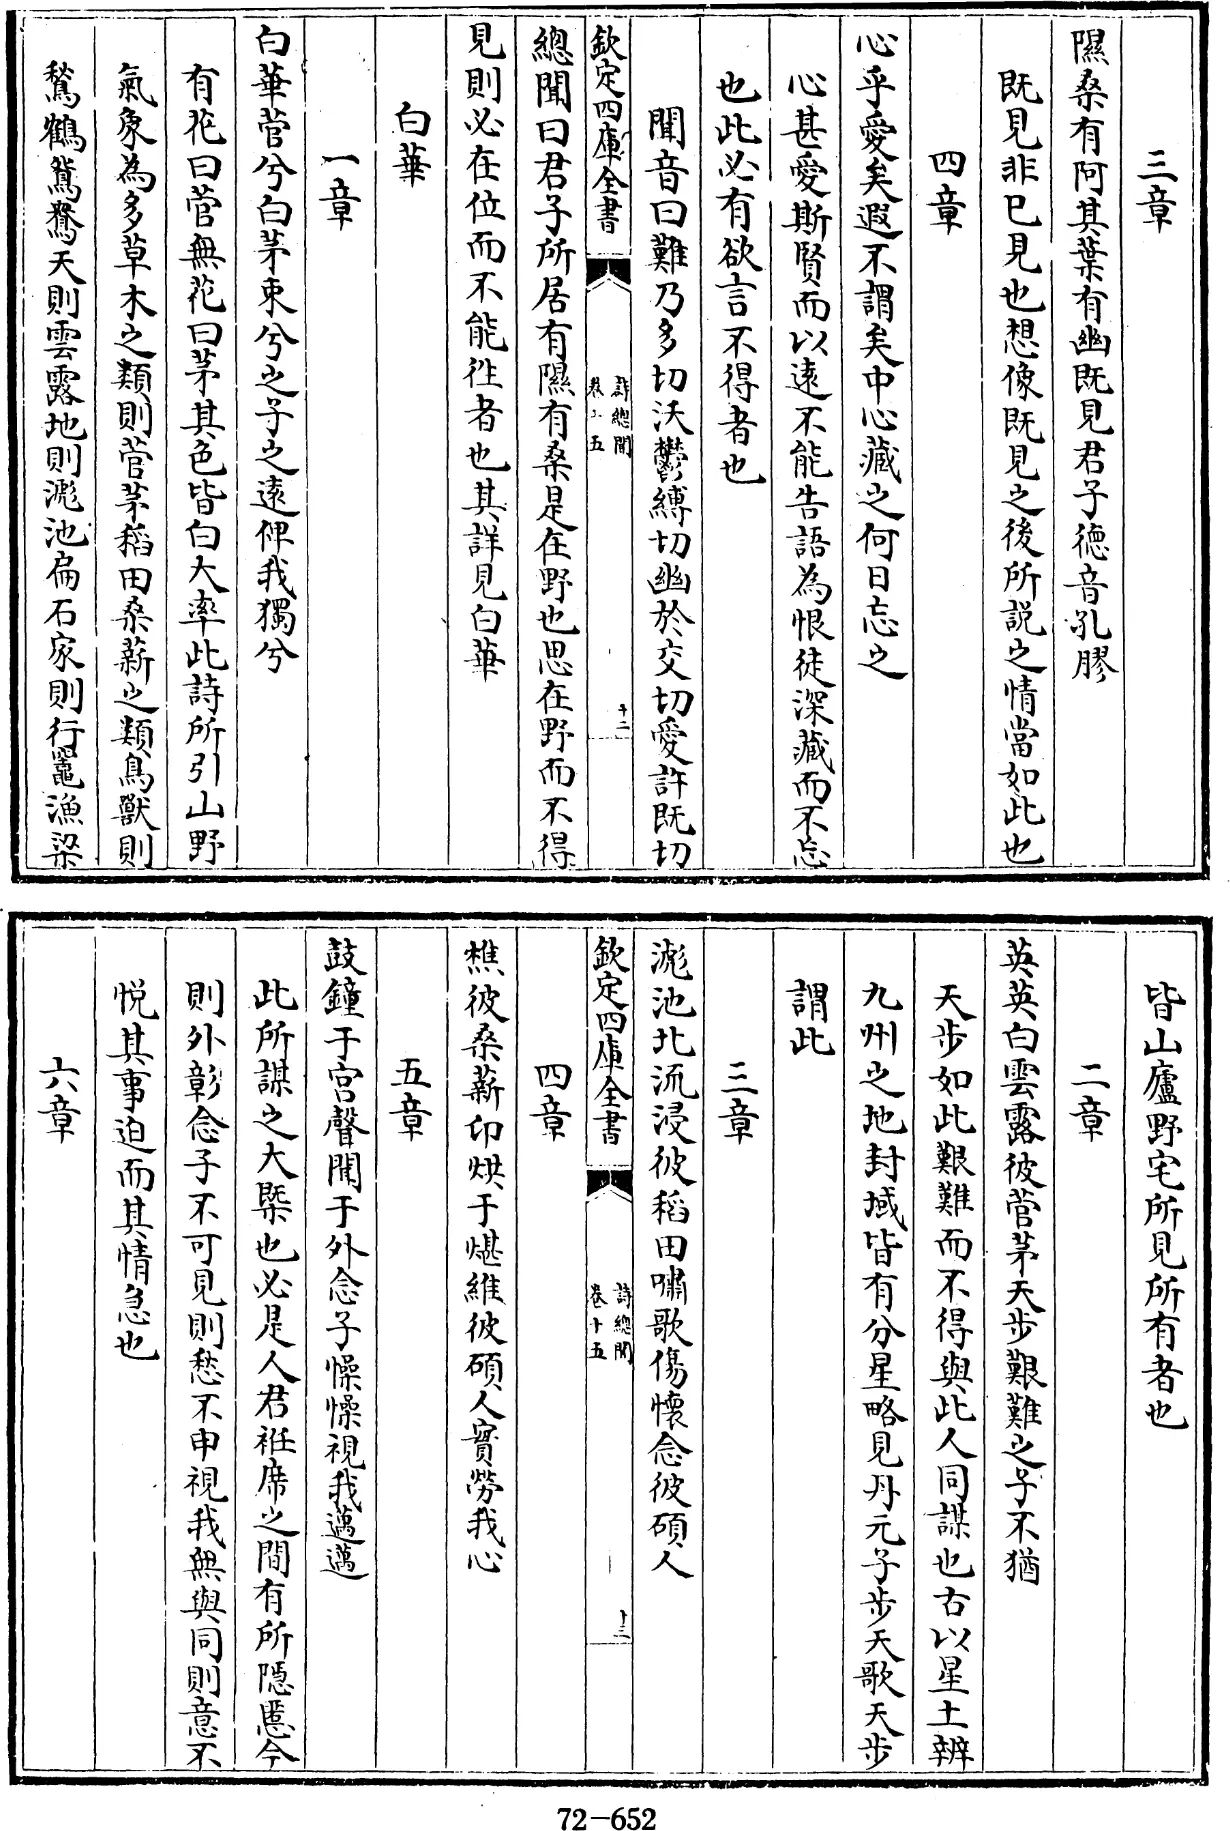 三章
隰桑有阿其葉有幽既見君子德音孔膠
既見非已見也想像既見之後所説之情當如此也
四章
心乎愛矣遐不謂矣中心藏之何日忘之
心甚愛斯賢而以遠不能告語為恨徒深藏而不忘
也此必有欲言不得者也
聞音曰難乃多切沃鬱縛切幽於交切愛許既切
欽定四庫全書
詩總聞
卷十五
十二
總聞曰君子所居有隰有桑是在野也思在野而不得
見則必在位而不能徃者也其詳見白華
白華
一章
白華菅兮白茅束兮之子之遠俾我獨兮
有花曰菅無花曰茅其色皆白大率此詩所引山野
氣象為多草木之類則菅茅稻田桑薪之類鳥獸則
鶖鶴鴛鴦天則雲露地則滮池扁石家則行竈漁梁
皆山廬野宅所見所有者也
二章
英英白雲露彼菅茅天步艱難之子不猶
天步如此艱難而不得與此人同謀也古以星土辨
九州之地封域皆有分星略見丹元子步天歌天步
謂此
三章
滮池北流浸彼稻田嘯歌傷懷念彼碩人
欽定四庫全書
詩總聞
卷十五
十三
四章
樵彼桑薪卬烘于煁維彼碩人實勞我心
五章
鼓鐘于宫聲聞于外念子懆懆視我邁邁
此所謀之大槩也必是人君袵席之間有所隠慝今
則外彰念子不可見則愁不申視我無與同則意不
悦其事迫而其情急也
六章
72-652